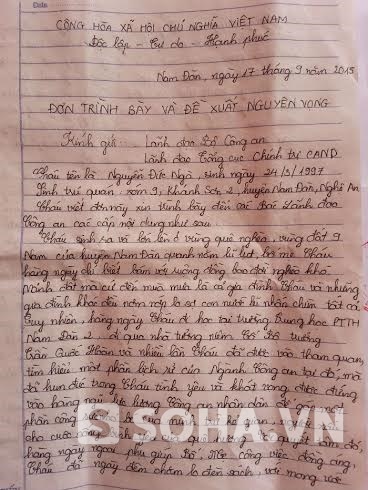 CỘNG HÒA XÃ HỘI CHỦ NGHĨA VIỆT NAM
Độc lập - Tự do - Hạnh phúc
Nam Đàn, ngày 17 tháng 9 năm 2015
ĐƠN TRÌNH BÀY VÀ ĐỀ XUẤT NGUYỆN VỌNG
Kính gửi: Lãnh đạo Bộ Công an
Lãnh đạo Tổng cục Chính trị CAND
Cháu tên là Nguyễn Đức Ngà, sinh ngày 24/3/1997
Sinh trú quán, xóm 9, Khánh Sơn 2, huyện Nam Đàn, Nghệ An
Cháu viết đơn này xin trình bày đến các Bác Lãnh đạo
Công an các cấp nội dung như sau
Cháu sinh ra và lớn lên ở vùng quê nghèo, vùng đất 9
Nam của huyện Nam Đàn quanh năm lũ lụt, bố mẹ Cháu
hàng ngày chỉ biết bám với ruộng đồng bao đời nghèo khó
Mảnh đất mà cứ đến mùa mưa là cả gia đình Cháu và những
gia đình khác đều nơm nớp lo sợ cơn nước lũ nhấn chìm tất cả
Tuy nhiên, hàng ngày Cháu đi học tại trường Trung học PTTH
Nam Đàn 2, đi qua nhà tưởng niệm Cố Bộ trưởng
Trần Quốc Hoàn và nhiều lần Cháu đã được vào tham quan,
tìm hiểu một phần lịch sử của Ngành Công an tại đó, mà
đã hun đúc trong Cháu tình yêu và khát vọng được đứng
vào hàng ngũ lực lượng Công an nhân dân để góp một
phần công sức của
cho cuộc
hàng ngày ngoài phụ giúp Bố, Mẹ công việc đồng áng,
Cháu đã ngày đêm chăm lo đèn sách với mong ước
SOHA.VN